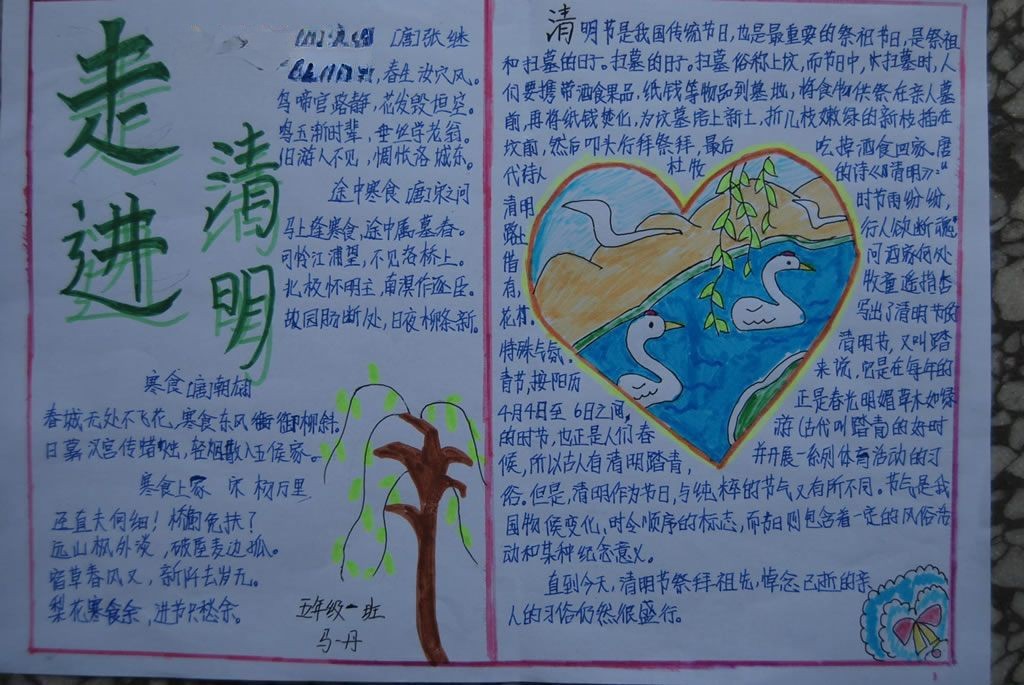 走进
清明
[唐]张继
春生汝穴风。
鸟啼官路静，花发毁垣空。
鸣玉渐时辈，垂丝学老翁。
旧游人不见，惆怅洛城东。
途中寒食 [唐]宋之问
马上逢寒食，途中属暮春。
可怜江浦望，不见洛桥上。
北极怀明主，南溟作逐臣。
故园肠断处，日夜柳条新。
寒食 [唐]
春城无处不飞花，寒食东风御柳斜。
日暮汉宫传蜡烛，轻烟散入五侯家。
寒食上冢 宋 杨万里
还直夫何细！桥危免扶？
远山枫外淡，破屋麦边孤。
宿草春风又，新阡去岁无。
梨花寒食余，进节只愁余。
五年级一班
马丹
清明节是我国传统节日，也是最重要的祭祖节日，是祭祖
和扫墓的日子。扫墓的日子。扫墓俗称上坟，而节日中，扫墓时，人
们要携带酒食果品，纸钱等物品到墓地，将食物供祭在亲人墓
前，再将纸钱焚化，为坟墓培上新土，折几枝嫩绿的新枝插在
坟前，然后叩头行拜祭拜，最后 吃掉酒食回家。唐
代诗人 杜牧 的诗《清明》："
清明 时节雨纷纷，
路上 行人欲断魂"
借 问酒家何处
有， 牧童遥指杏
花村。 写出了清明节的
特殊气氛。 清明节，又叫踏
青节，按阳历 来说，它是在每年的
4月4日至6日之间， 正是春光明媚草木如绿
的时节，也正是人们春 游（古代叫踏青）的好时
候，所以古人有清明踏青， 并开展一系列体育活动的习
俗。但是，清明作为节日，与纯粹的节气又有所不同。节气是我
国物候变化，时令顺序的标志，而节日则包含着一定的风俗活
动和某种纪念意义。
直到今天，清明节祭拜祖先，悼念已逝的亲
人的习俗仍然很盛行。